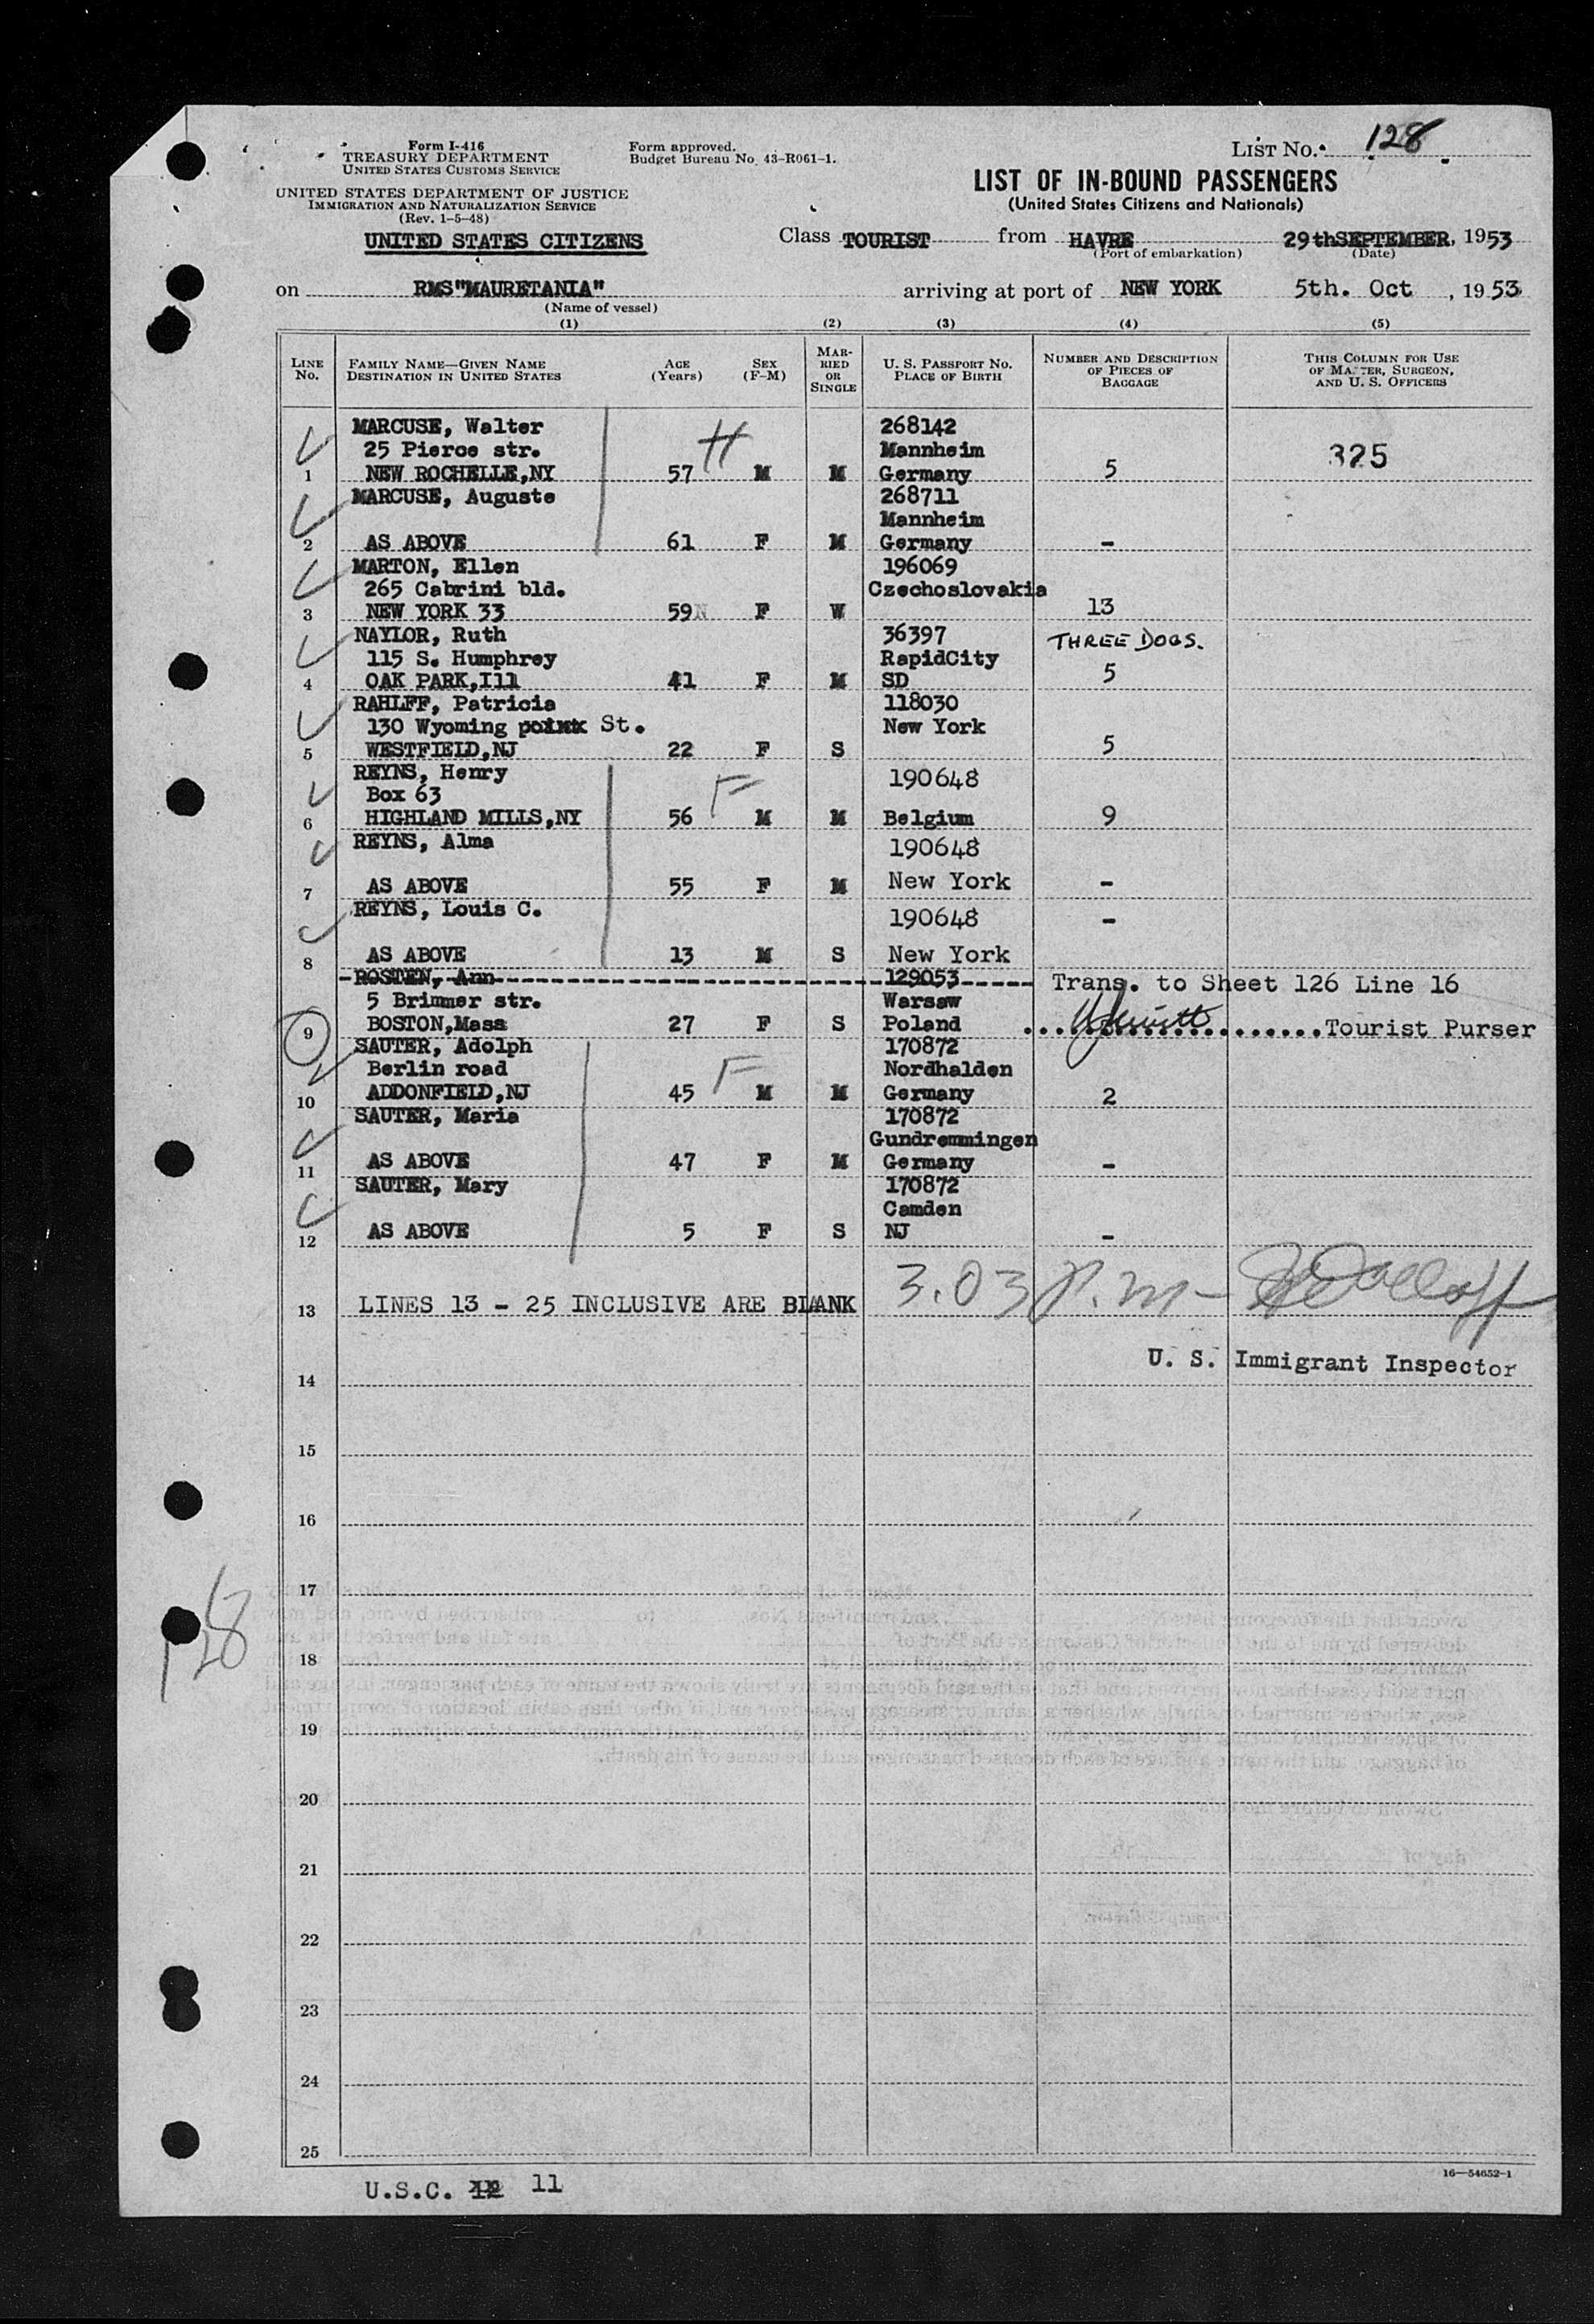 Form I-416
TREASURY DEPARTMENT
UNITED STATES CUSTOMS SERVICE
UNITED STATES DEPARTMENT OF JUSTICE
IMMIGRATION AND NATURALIZATION SERVICE
(Rev. 1-5-48)
Form approved.
Budget Bureau No. 43-R061-1.
LIST No. 128
LIST OF IN-BOUND PASSENGERS
(United States Citizens and Nationals)
UNITED STATES CITIZENS
Class TOURIST from HAVRE 29thSEPTEMBER, 1953
(Port of embarkation) (Date)
on RMS"MAURETANIA" arriving at port of NEW YORK 5th. Oct , 1953
(Name of vessel)
(1) (2) (3) (4) (5)
LINE No. FAMILY NAME—GIVEN NAME DESTINATION IN UNITED STATES AGE (Years) SEX (F-M) MARRIED OR SINGLE U. S. PASSPORT NO. PLACE OF BIRTH NUMBER AND DESCRIPTION OF PIECES OF BAGGAGE THIS COLUMN FOR USE OF MASTER, SURGEON, AND U. S. OFFICERS
MARCUSE, Walter 268142
25 Pierce str. H Mannheim 325
1 NEW ROCHELLE,NY 57 M M Germany 5
MARCUSE, Auguste 268711
Mannheim
2 AS ABOVE 61 F M Germany -
MARTON, Ellen 196069
265 Cabrini bld. Czechoslovakia
3 NEW YORK 33 59N F W 13
NAYLOR, Ruth 36397 THREE DOGS.
115 S. Humphrey RapidCity
4 OAK PARK,Ill 41 F M SD 5
RAHLFF, Patricia 118030
130 Wyoming point St. New York
5 WESTFIELD,NJ 22 F S 5
REYNS, Henry 190648
Box 63 F
6 HIGHLAND MILLS,NY 56 M M Belgium 9
REYNS, Alma 190648
7 AS ABOVE 55 F M New York -
REYNS, Louis C. 190648 -
8 AS ABOVE 13 M S New York
ROSTEN, Ann 129053 Trans. to Sheet 126 Line 16
5 Brimmer str. Warsaw
9 BOSTON,Mass 27 F S Poland Tourist Purser
SAUTER, Adolph 170872
Berlin road F Nordhalden
10 ADDONFIELD,NJ 45 M M Germany 2
SAUTER, Maria 170872
Gundremmingen
11 AS ABOVE 47 F M Germany -
SAUTER, Mary 170872
Camden
12 AS ABOVE 5 F S NJ -
13 LINES 13 - 25 INCLUSIVE ARE BLANK 3.03 P.M-
U. S. Immigrant Inspector
14
15
16
17
128
18
19
20
21
22
23
24
25
16—54652-1
U.S.C. 12 11